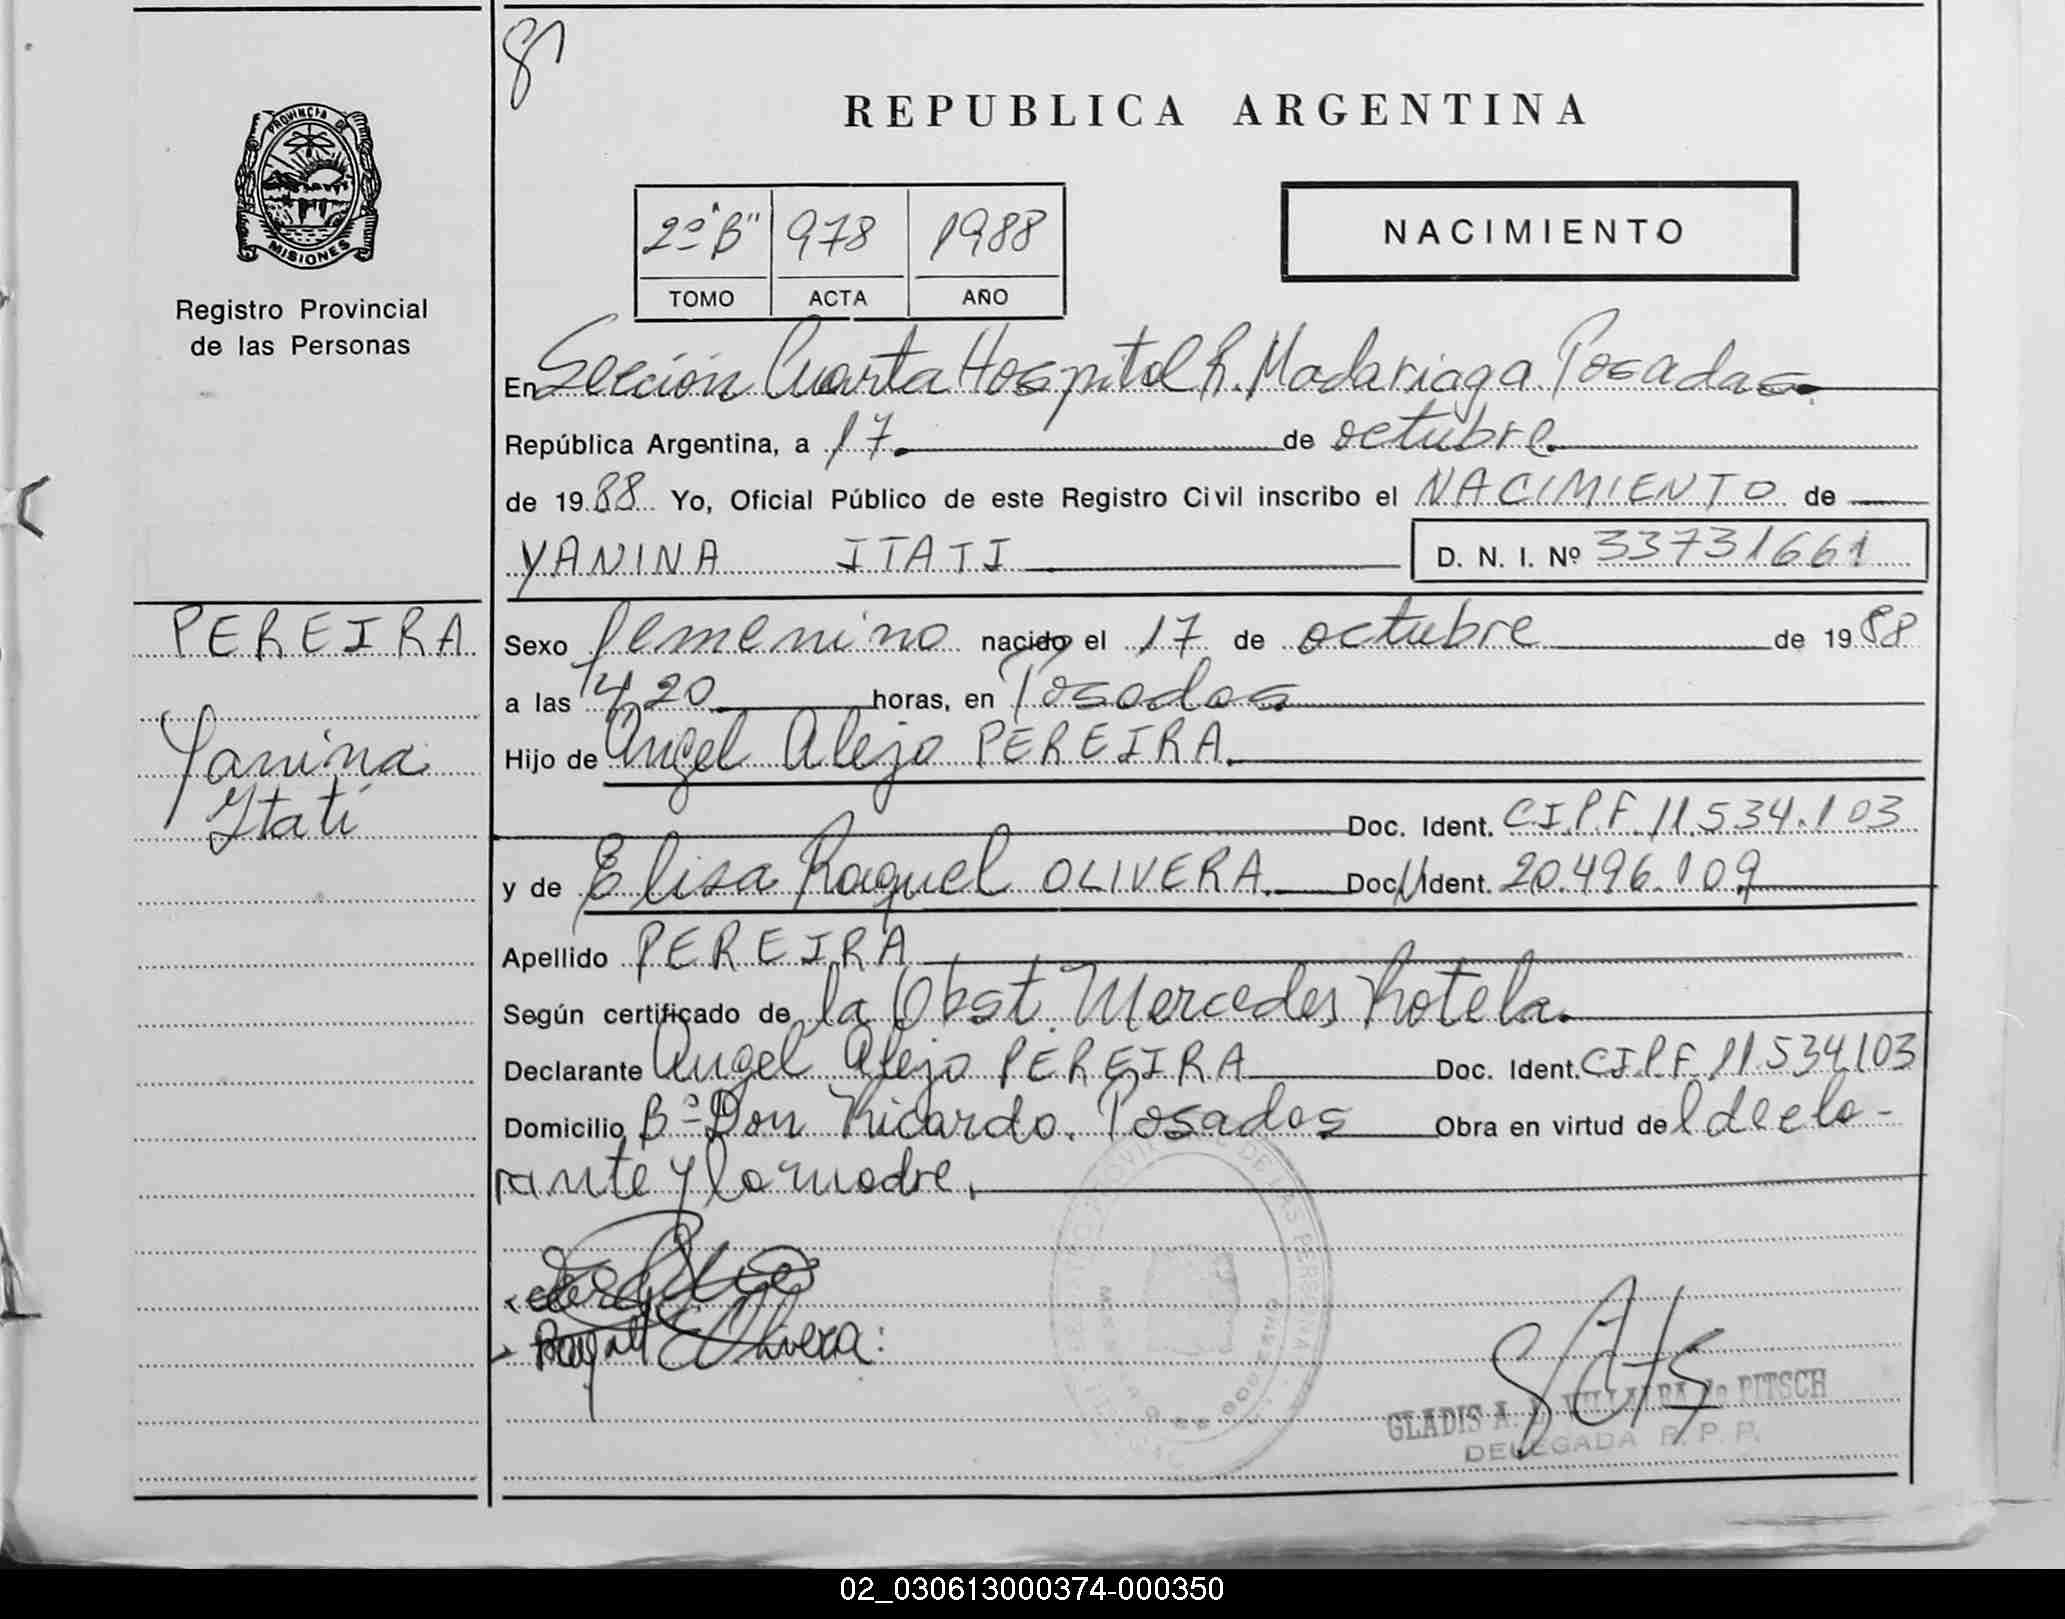 81
REPUBLICA ARGENTINA
PROVINCIA DE
MISIONES
Registro Provincial
de las Personas
2º "B" 978 1988
TOMO ACTA AÑO
NACIMIENTO
En Sección Cuarta Hospital R. Madariaga Posadas.
República Argentina, a 17. de octubre.
de 1988 Yo, Oficial Público de este Registro Civil inscribo el NACIMIENTO de
YANINA ITATI D. N. I. Nº 33731661
PEREIRA
Yanina
Itatí
Sexo femenino nacido el 17 de octubre de 1988
a las 14,20 horas, en Posadas
Hijo de Angel Alejo PEREIRA.
Doc. Ident. C.I.P.F. 11.534.103
y de Elisa Raquel OLIVERA. Doc. Ident. 20.496.109
Apellido PEREIRA
Según certificado de la Obst. Mercedes Rotela.
Declarante Angel Alejo PEREIRA Doc. Ident. C.I.P.F. 11.534.103
Domicilio Bº Don Ricardo. Posadas Obra en virtud del decla-
rante y la madre.
Olivera
GLADIS A. VILLALBA de PITSCH
DELEGADA R. P. P.
02_030613000374-000350